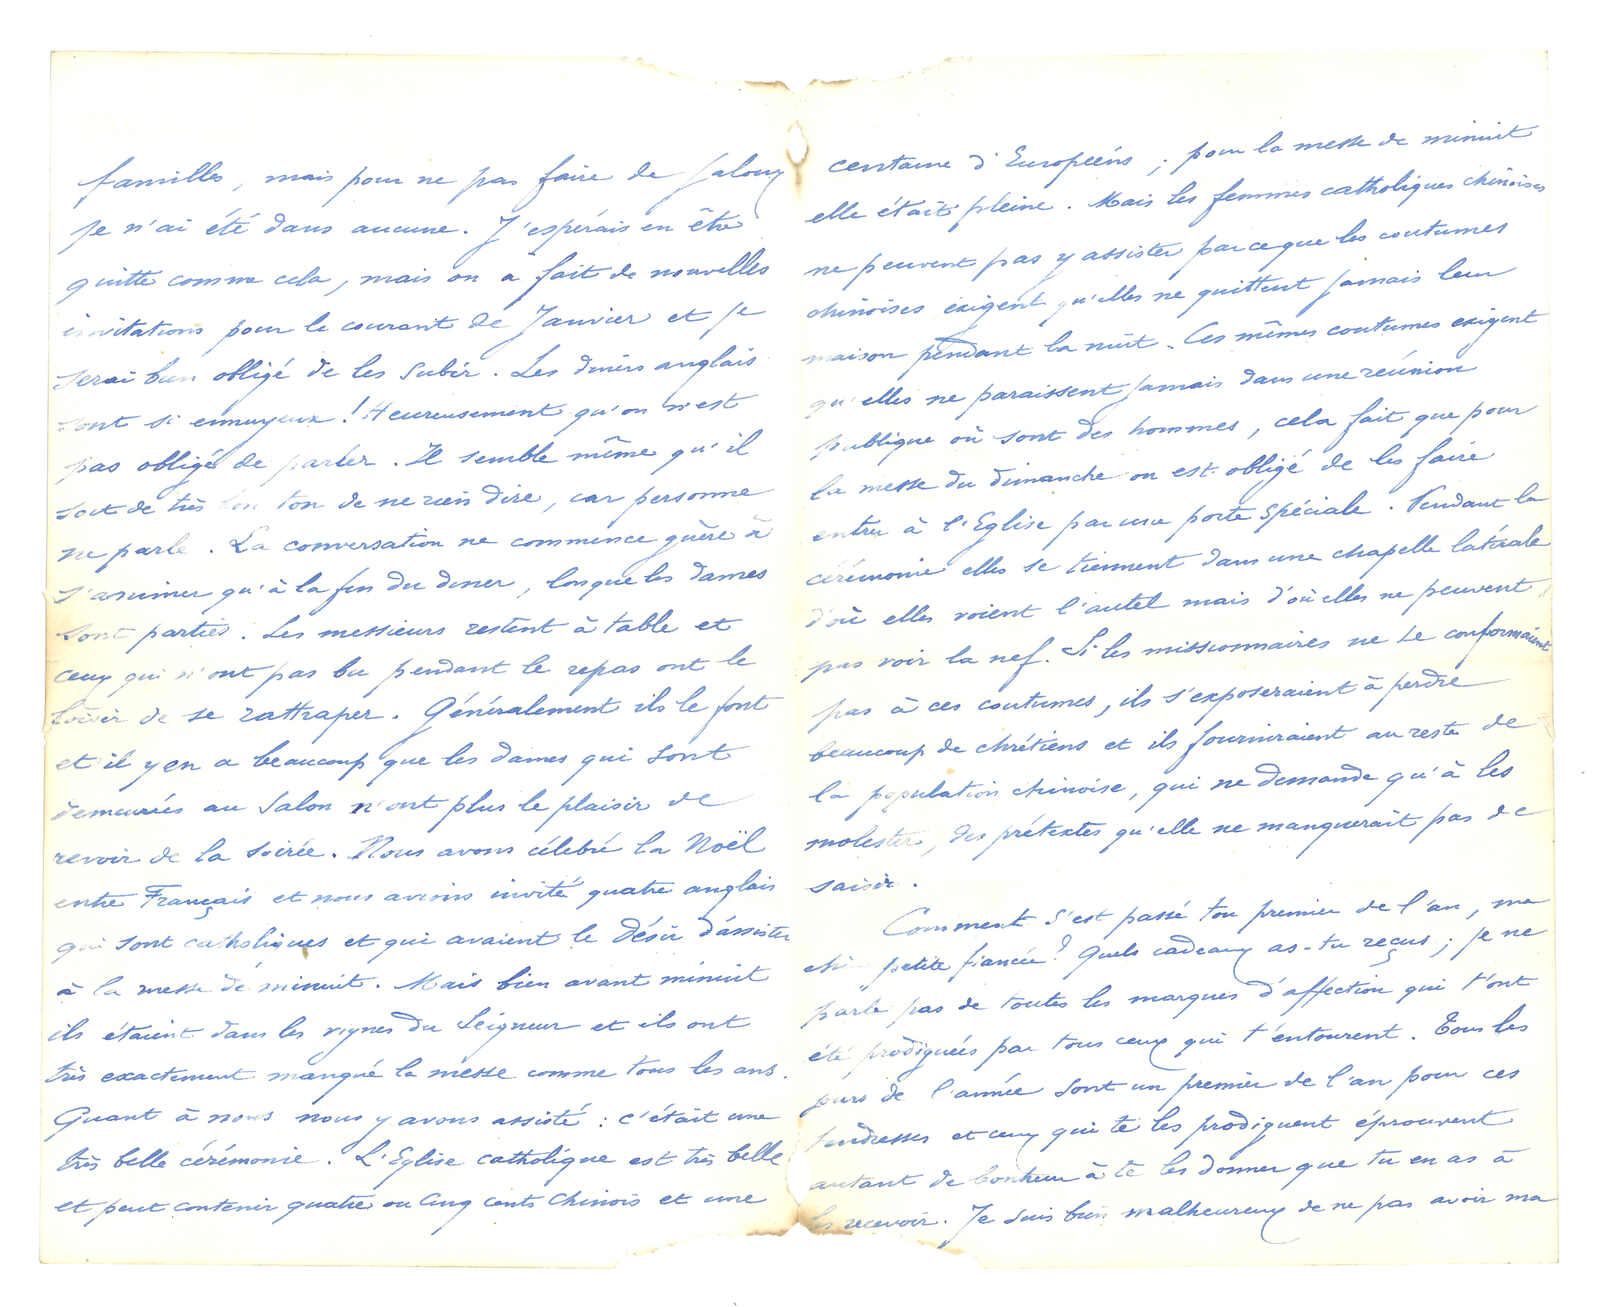 familles, mais pour ne pas faire de jaloux
je n'ai été dans aucune. J'espérais en être
quitte comme cela, mais on a fait de nouvelles
invitations pour le courant de Janvier et je
serai bien obligé de les subir. Les dîners anglais
sont si ennuyeux ! Heureusement qu'on n'est
pas obligé de parler. Il semble même qu'il
soit de très bon ton de ne rien dire, car personne
ne parle. La conversation ne commence guère à
s'animer qu'à la fin du diner, lorsque les dames
sont parties. Les messieurs restent à table et
ceux qui n'ont pas bu pendant le repas ont le
loisir de se rattraper. Généralement ils le font
et il y en a beaucoup que les dames qui sont
demeurées au salon n'ont plus le plaisir de
revoir de la soirée. Nous avons célébré la Noël
entre Français et nous avions invité quatre anglais
qui sont catholiques et qui avaient le désir d'assister
à la messe de minuit. Mais bien avant minuit
ils étaient dans les vignes du Seigneur et ils ont
très exactement manqué la messe comme tous les ans.
Quant à nous nous y avons assisté : c'était une
très belle cérémonie. L'Eglise catholique est très belle
et peut contenir quatre ou cinq cents chinois et une
centaine d'Européens ; pour la messe de minuit
elle était pleine. Mais les femmes catholiques chinoises
ne peuvent pas y assister parceque les coutumes
chinoises exigent qu'elles ne quittent jamais leur
maison pendant la nuit. Ces mêmes coutumes exigent
qu'elles ne paraissent jamais dans une réunion
publique où sont des hommes, cela fait que pour
la messe du dimanche on est obligé de les faire
entrer à l'Eglise par une porte spéciale. Pendant la
cérémonie elles se tiennent dans une chapelle latérale
d'où elles voient l'autel mais d'où elles ne peuvent
pas voir la nef. Si les missionnaires ne se conformaient
pas à ces coutumes, ils s'exposeraient à perdre
beaucoup de chrétiens et ils fourniraient au reste de
la population chinoise, qui ne demande qu'à les
molester, des prétextes qu'elle ne manquerait pas de
saisir.
Comment s'est passé ton premier de l'an, ma
petite fiancée ? Quels cadeaux as-tu reçus ; je ne
parle pas de toutes les marques d'affection qui t'ont
été prodiguées par tous ceux qui t'entourent. Tous les
jours de l'année sont un premier de l'an pour ces
tendresses et ceux qui te les prodiguent éprouvent
autant de bonheur à te les donner que tu en as à
les recevoir. Je suis bien malheureux de ne pas avoir ma